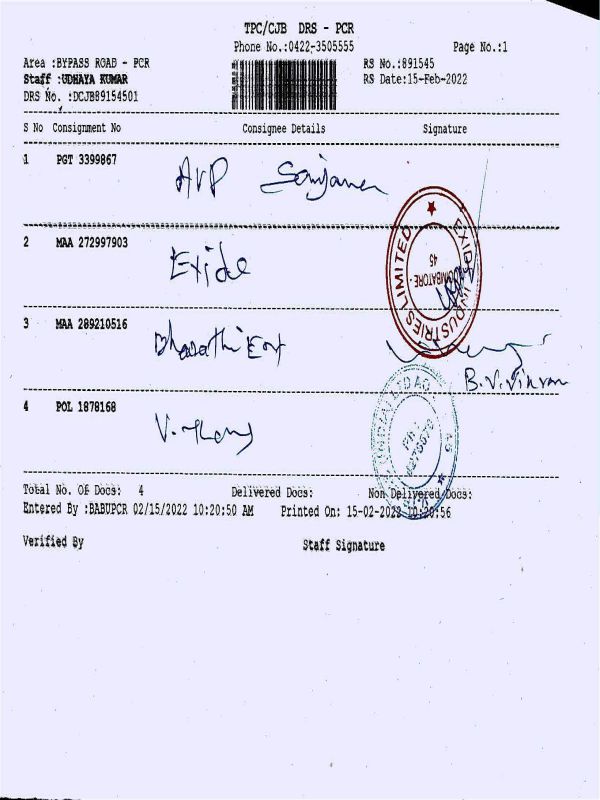 TPC/CJB DRS - PCR
Phone No.:0422-3505555
Page No.:1
Area :BYPASS ROAD - PCR
RS No.:891545
Staff :UDHAYA KUMAR
RS Date:15-Feb-2022
DRS No. :DCJB89154501
S No Consignment No Consignee Details Signature
1 PGT 3399867
AVP
2 MAA 272997903
Exide
EXIDE INDUSTRIES LIMITED
COIMBATORE - 45
3 MAA 289210516
Bharathi
B.V.
4 POL 1878168
Total No. Of Docs: 4 Delivered Docs: Non Delivered Docs:
Entered By :BABUPCR 02/15/2022 10:20:50 AM Printed On: 15-02-2022 10:20:56
Verified By Staff Signature